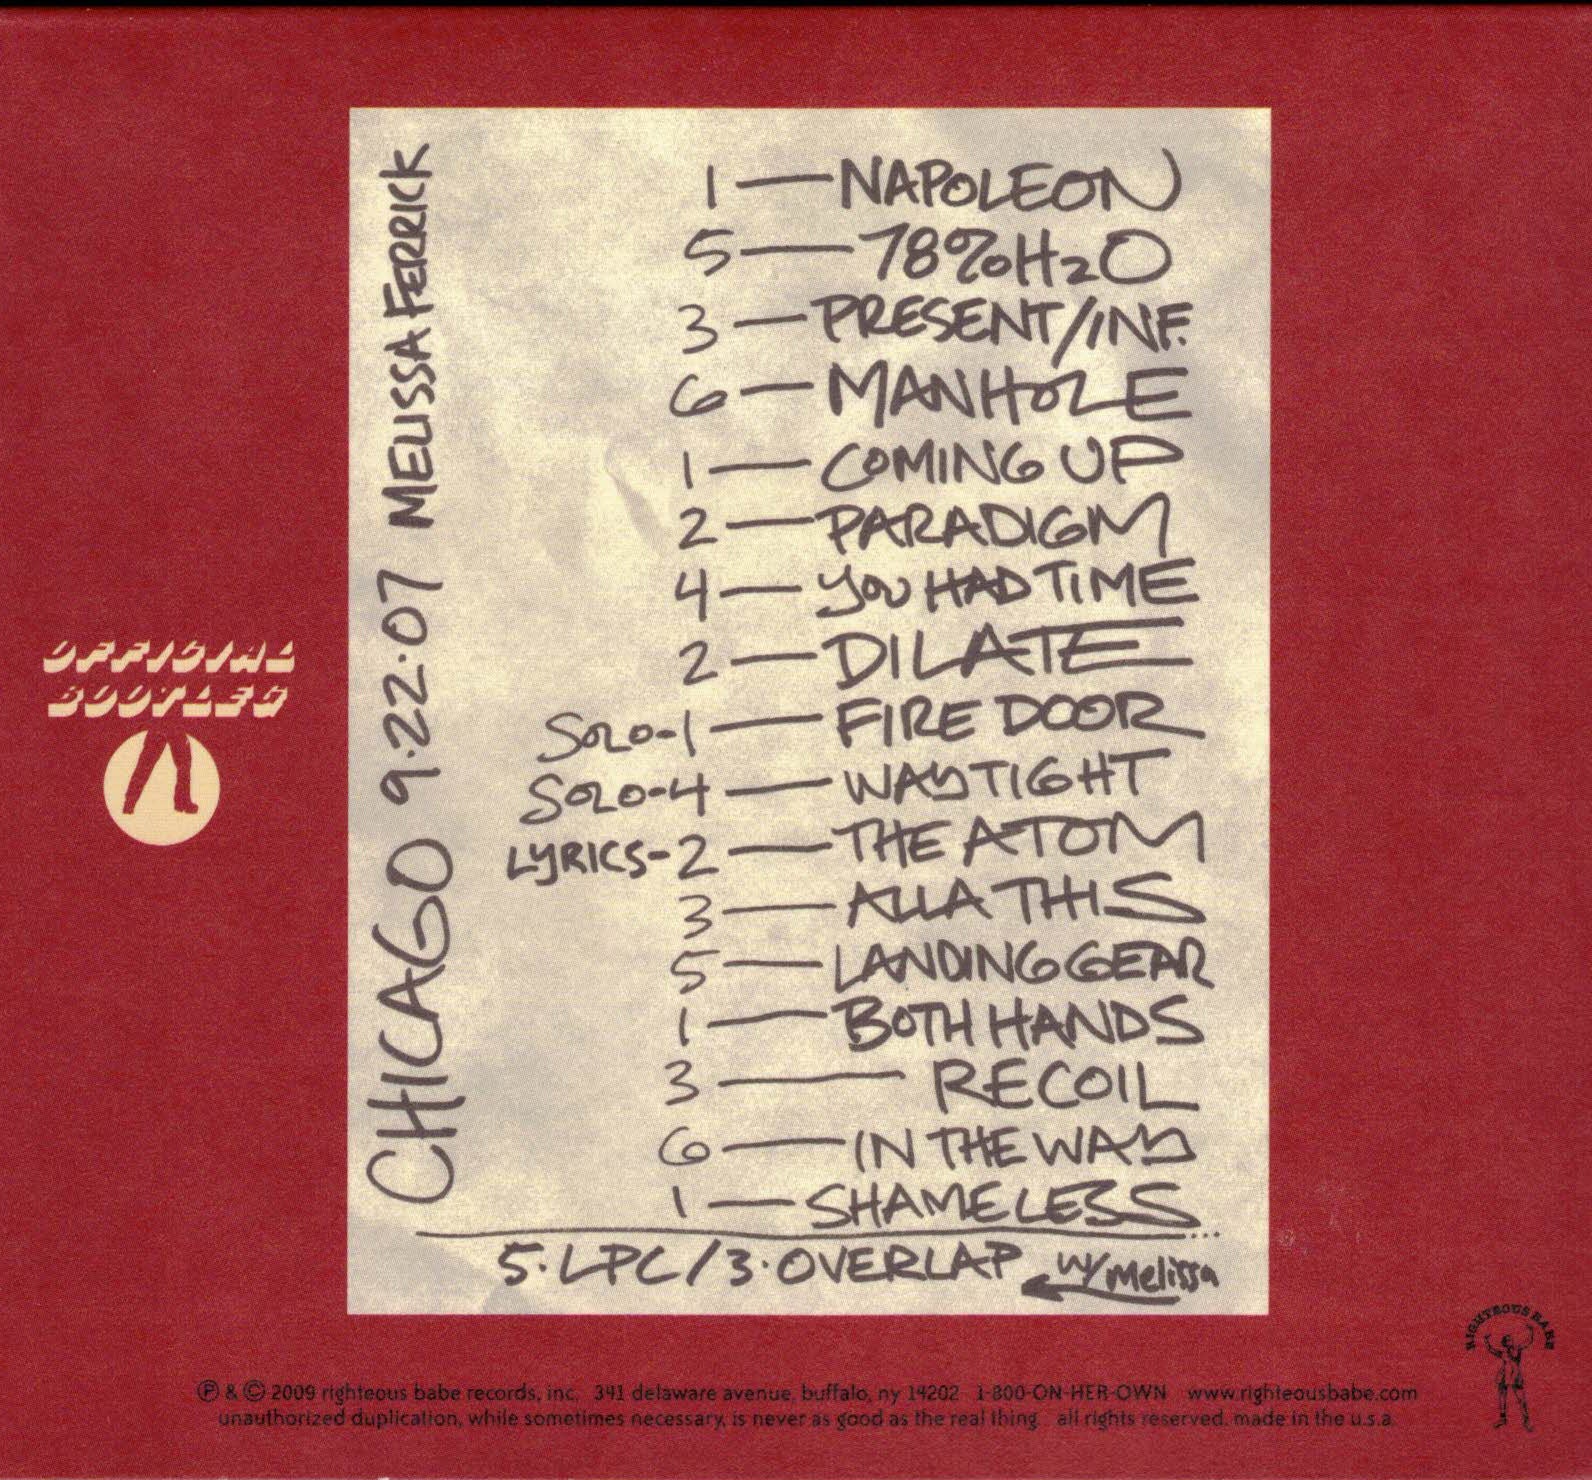 CHICAGO 9·22·07 MELISSA FERRICK
1 — NAPOLEON
5 — 78% H2O
3 — PRESENT/INF.
6 — MANHOLE
1 — COMING UP
2 — PARADIGM
4 — YOU HAD TIME
2 — DILATE
SOLO-1 — FIRE DOOR
SOLO-4 — WAY TIGHT
LYRICS-2 — THE ATOM
3 — ALLA THIS
5 — LANDING GEAR
1 — BOTH HANDS
3 — RECOIL
6 — IN THE WAY
1 — SHAMELESS
5·LPC/3·OVERLAP w/Melissa
OFFICIAL
BOOTLEG
RIGHTEOUS BABE
℗ & © 2009 righteous babe records, inc. 341 delaware avenue, buffalo, ny 14202 1-800-ON-HER-OWN www.righteousbabe.com
unauthorized duplication, while sometimes necessary, is never as good as the real thing. all rights reserved. made in the u.s.a.